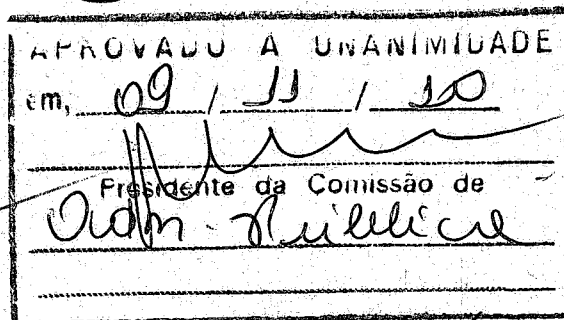 APROVADO À UNANIMIDADE
em, 09 / 11 / 10
Presidente da Comissão de
Adm. Pública